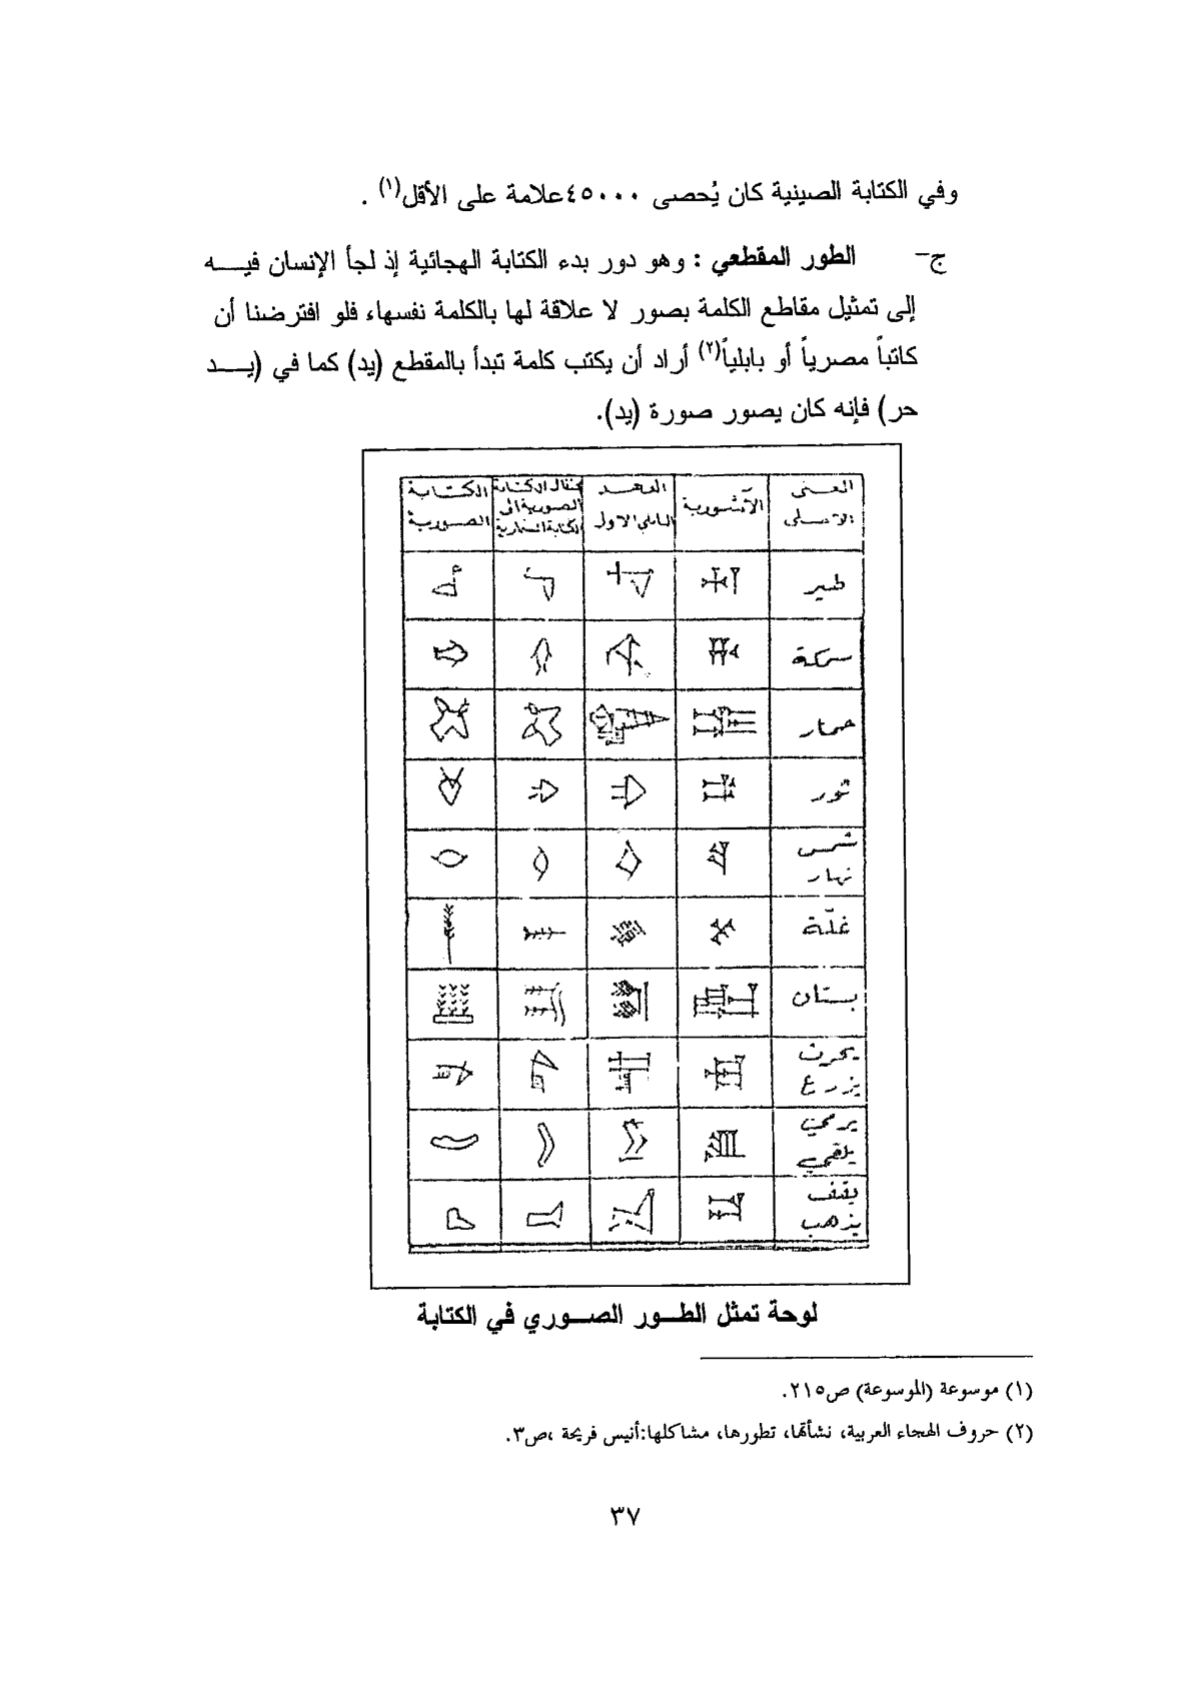 وفي الكتابة الصينية كان يُحصى ٤٥٠٠٠علامة على الأقل(١) .
ج- الطور المقطعي : وهو دور بدء الكتابة الهجائية إذ لجأ الإنسان فيـــه
إلى تمثيل مقاطع الكلمة بصور لا علاقة لها بالكلمة نفسهاء فلو افترضنا أن
كاتباً مصرياً أو بابلياً(٢) أراد أن يكتب كلمة تبدأ بالمقطع (يد) كما في (يـــد
حر) فإنه كان يصور صورة (يد).
المعنى الأشورية العهد الكتابة
الاصلى البابلي الاول الصورية الى الصورية
الكتابة المسمارية
طير
سمكة
حمار
ثور
شمس
نهار
غلّة
بستان
يحرث
يزرع
يرمي
يلقي
يقف
يذهب
لوحة تمثل الطـــور الصـــوري في الكتابة
(١) موسوعة (الموسوعة) ص٢١٥.
(٢) حروف الهجاء العربية، نشأتها، تطورها، مشاكلها:أنيس فريحة ،ص٣.
٣٧